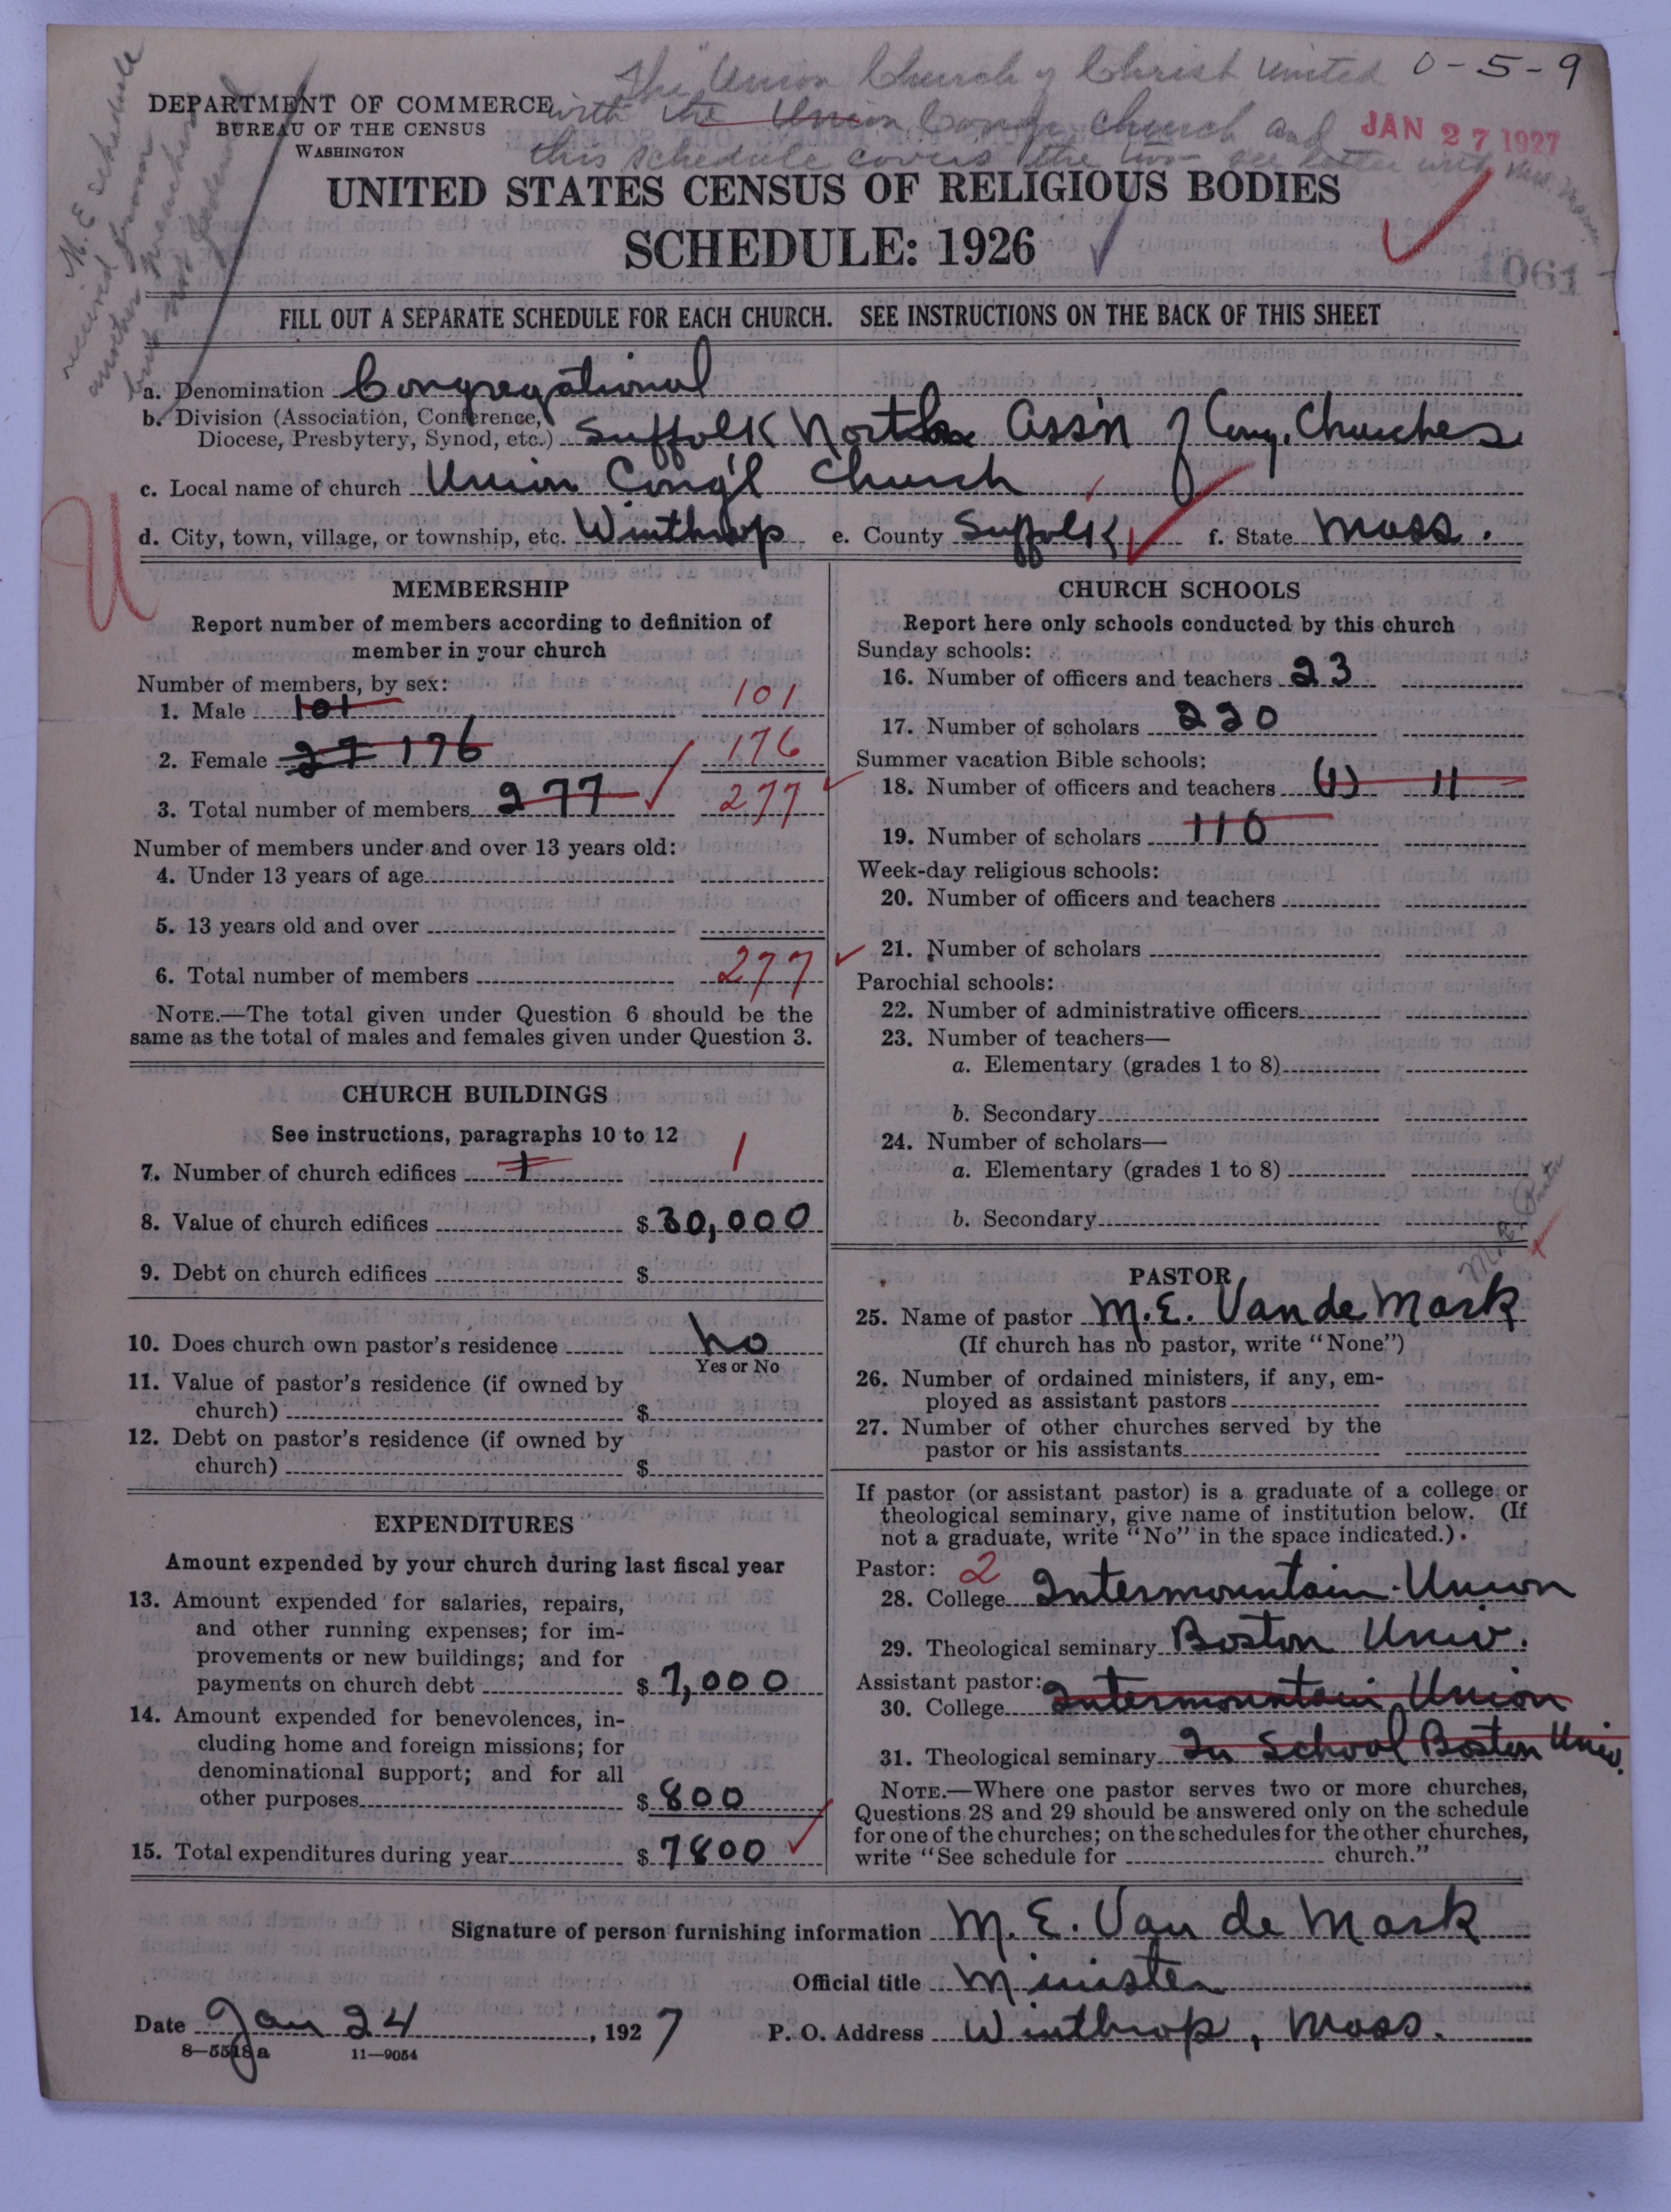 The Union Church of Christ united 0-5-9
with the Union Cong. Church and
this schedule covers the two - see letter with
M. E. schedule
received from
another
but
DEPARTMENT OF COMMERCE
BUREAU OF THE CENSUS
WASHINGTON
JAN 27 1927
UNITED STATES CENSUS OF RELIGIOUS BODIES
SCHEDULE: 1926
1061
FILL OUT A SEPARATE SCHEDULE FOR EACH CHURCH. SEE INSTRUCTIONS ON THE BACK OF THIS SHEET
a. Denomination Congregational
b. Division (Association, Conference,
Diocese, Presbytery, Synod, etc.) Suffolk North Ass'n of Cong. Churches
c. Local name of church Union Cong'l Church
d. City, town, village, or township, etc. Winthrop e. County Suffolk f. State Mass.
U
MEMBERSHIP
Report number of members according to definition of
member in your church
Number of members, by sex:
1. Male 101 101
2. Female 27 176 176
3. Total number of members 277 277
Number of members under and over 13 years old:
4. Under 13 years of age
5. 13 years old and over
6. Total number of members 277
NOTE.—The total given under Question 6 should be the
same as the total of males and females given under Question 3.
CHURCH BUILDINGS
See instructions, paragraphs 10 to 12
7. Number of church edifices 1 1
8. Value of church edifices $ 30,000
9. Debt on church edifices $
10. Does church own pastor's residence No
Yes or No
11. Value of pastor's residence (if owned by
church) $
12. Debt on pastor's residence (if owned by
church) $
EXPENDITURES
Amount expended by your church during last fiscal year
13. Amount expended for salaries, repairs,
and other running expenses; for im-
provements or new buildings; and for
payments on church debt $ 7,000
14. Amount expended for benevolences, in-
cluding home and foreign missions; for
denominational support; and for all
other purposes $ 800
15. Total expenditures during year $ 7800
CHURCH SCHOOLS
Report here only schools conducted by this church
Sunday schools:
16. Number of officers and teachers 23
17. Number of scholars 220
Summer vacation Bible schools:
18. Number of officers and teachers (1) 11
19. Number of scholars 110
Week-day religious schools:
20. Number of officers and teachers
21. Number of scholars
Parochial schools:
22. Number of administrative officers
23. Number of teachers—
a. Elementary (grades 1 to 8)
b. Secondary
24. Number of scholars—
a. Elementary (grades 1 to 8)
b. Secondary
PASTOR
25. Name of pastor M. E. Van de Mark
(If church has no pastor, write "None")
26. Number of ordained ministers, if any, em-
ployed as assistant pastors
27. Number of other churches served by the
pastor or his assistants
If pastor (or assistant pastor) is a graduate of a college or
theological seminary, give name of institution below. (If
not a graduate, write "No" in the space indicated.)
Pastor: 2
28. College Intermountain Union
29. Theological seminary Boston Univ.
Assistant pastor:
30. College Intermountain Union
31. Theological seminary In School Boston Univ.
NOTE.—Where one pastor serves two or more churches,
Questions 28 and 29 should be answered only on the schedule
for one of the churches; on the schedules for the other churches,
write "See schedule for church."
Signature of person furnishing information M. E. Van de Mark
Official title Minister
Date Jan 24, 1927 P. O. Address Winthrop, Mass.
8—5518a 11—9054